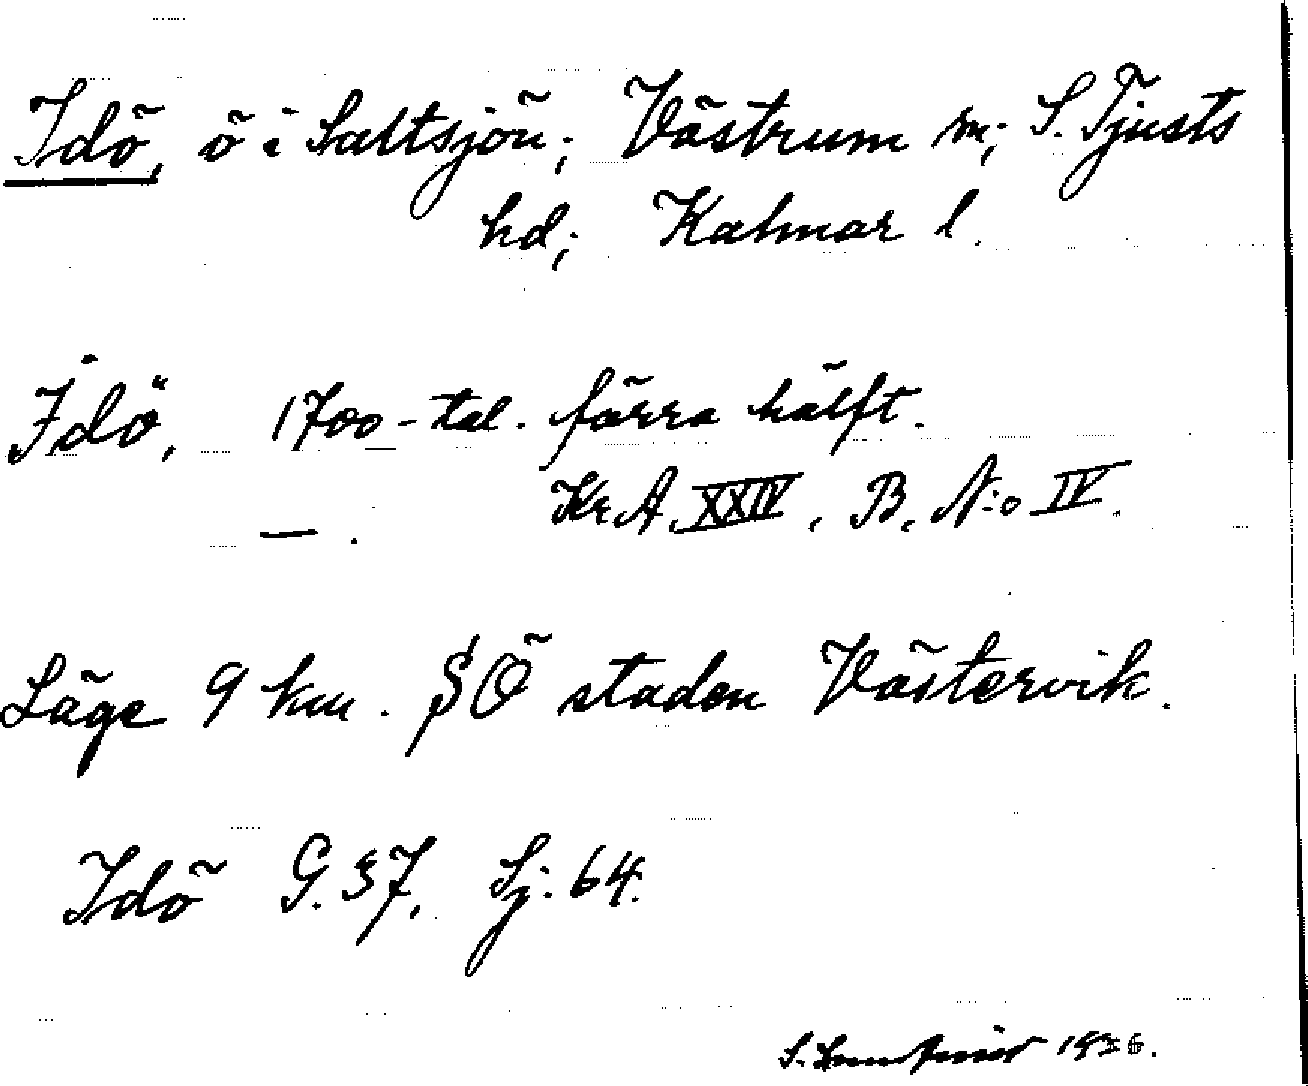 Idö, ö i Saltsjön; Västrum sn; S. Tjusts
hd; Kalmar l.
Idö, 1700-tal. förra hälft.
Kr.A. XXIV, B. N:o IV.
— .
Läge 9 km. SÖ staden Västervik.
Idö G. 37, Sj. 64.
S. 1936.